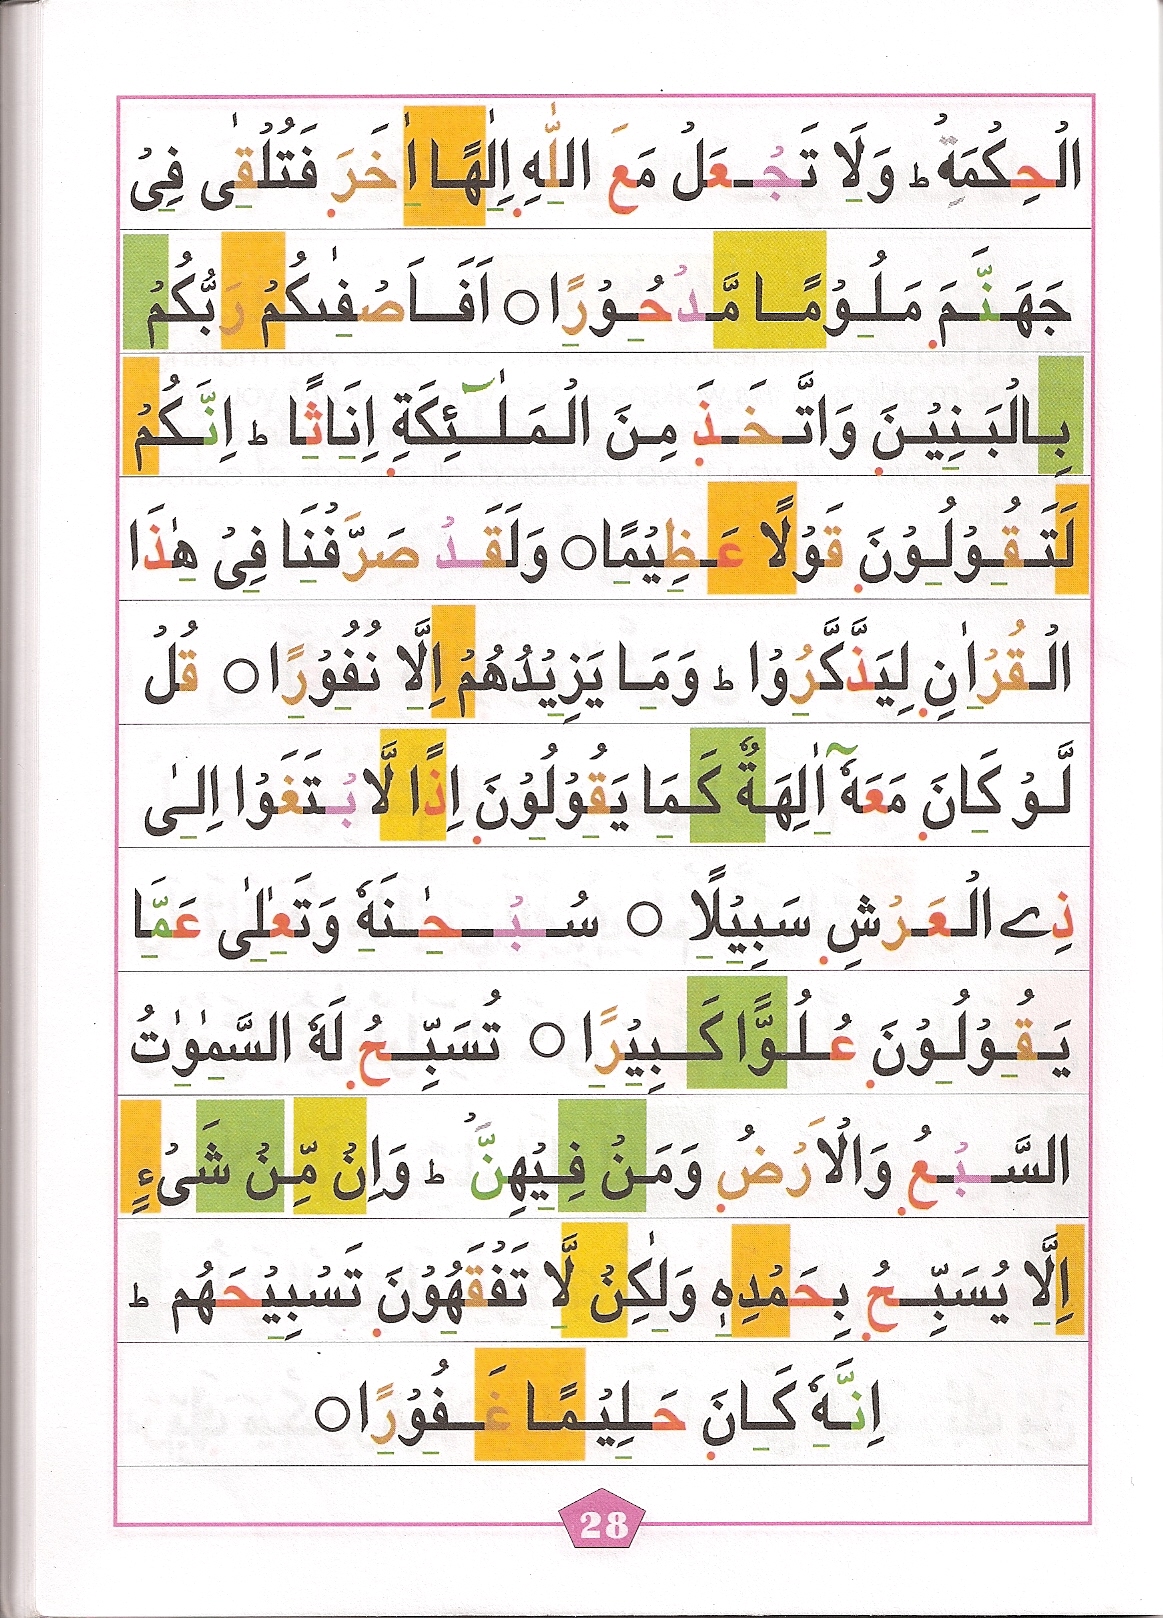 الْحِكْمَةِ ؕ وَلَا تَجْعَلْ مَعَ اللّٰهِ اِلٰهًا اٰخَرَ فَتُلْقٰى فِیْ
جَهَنَّمَ مَلُوْمًا مَّدْحُوْرًا ○ اَفَاَصْفٰىكُمْ رَبُّكُمْ
بِالْبَنِیْنَ وَاتَّخَذَ مِنَ الْمَلٰٓئِكَةِ اِنَاثًا ؕ اِنَّكُمْ
لَتَقُوْلُوْنَ قَوْلًا عَظِیْمًا ○ وَلَقَدْ صَرَّفْنَا فِیْ هٰذَا
الْقُرْاٰنِ لِیَذَّكَّرُوْا ؕ وَمَا یَزِیْدُهُمْ اِلَّا نُفُوْرًا ○ قُلْ
لَّوْ كَانَ مَعَهٗۤ اٰلِهَةٌ كَمَا یَقُوْلُوْنَ اِذًا لَّابْتَغَوْا اِلٰى
ذِی الْعَرْشِ سَبِیْلًا ○ سُبْحٰنَهٗ وَتَعٰلٰى عَمَّا
یَقُوْلُوْنَ عُلُوًّا كَبِیْرًا ○ تُسَبِّحُ لَهُ السَّمٰوٰتُ
السَّبْعُ وَالْاَرْضُ وَمَنْ فِیْهِنَّ ؕ وَاِنْ مِّنْ شَیْءٍ
اِلَّا یُسَبِّحُ بِحَمْدِهٖ وَلٰكِنْ لَّا تَفْقَهُوْنَ تَسْبِیْحَهُمْ ؕ
اِنَّهٗ كَانَ حَلِیْمًا غَفُوْرًا ○
28